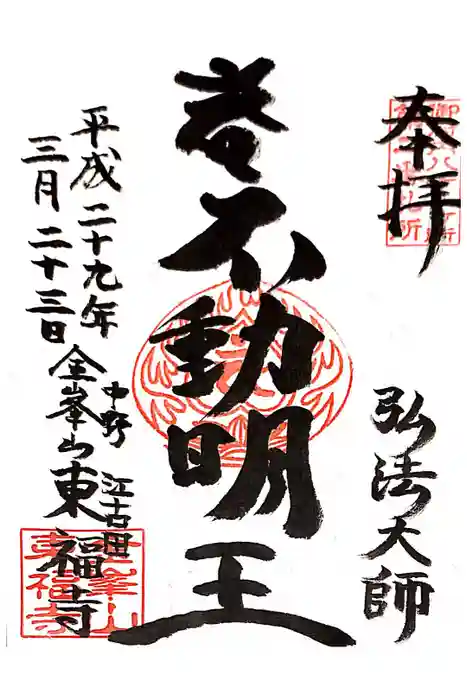 奉拝
弘法大師
不動明王
平成二十九年
三月二十三日
中野 江古田
金峯山東福寺
金峯山
東福寺